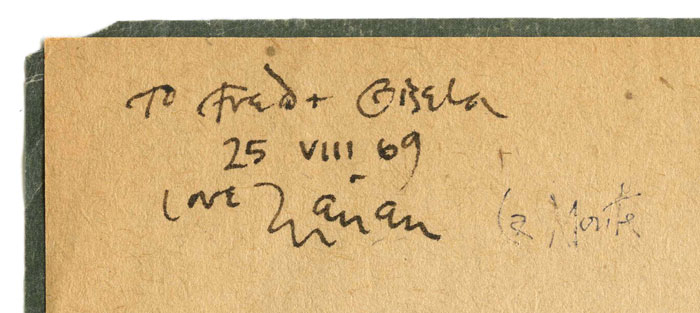 To Fred + Gisela
25 VIII 69
Love Marian La Monte